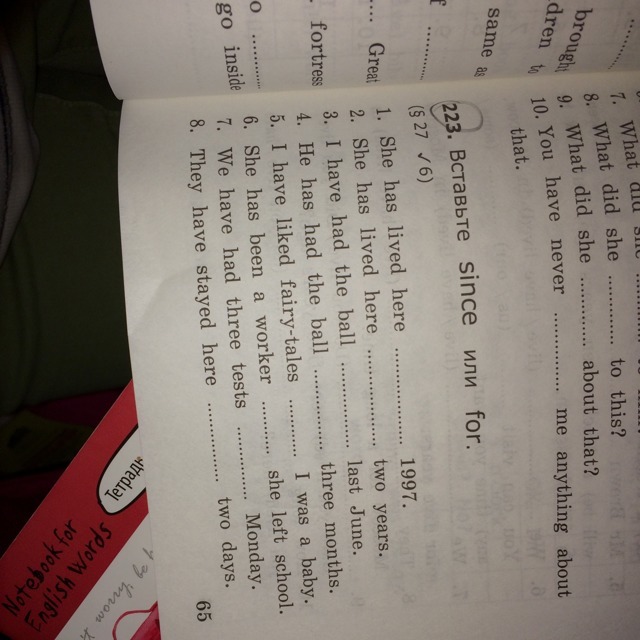 same as
.... Great
fortress
go inside
7. What did she
8. What did she ............ to this?
9. What did she ............ about that?
10. You have never ............. me anything about
that.
223. Вставьте since или for.
(§ 27 ✓6)
1. She has lived here .................. 1997.
2. She has lived here .................. two years.
3. I have had the ball .................. last June.
4. He has had the ball .................. three months.
5. I have liked fairy-tales ............ I was a baby.
6. She has been a worker .......... she left school.
7. We have had three tests .............. Monday.
8. They have stayed here ................ two days.
65
Тетрадь
Notebook for
English Words
worry, be